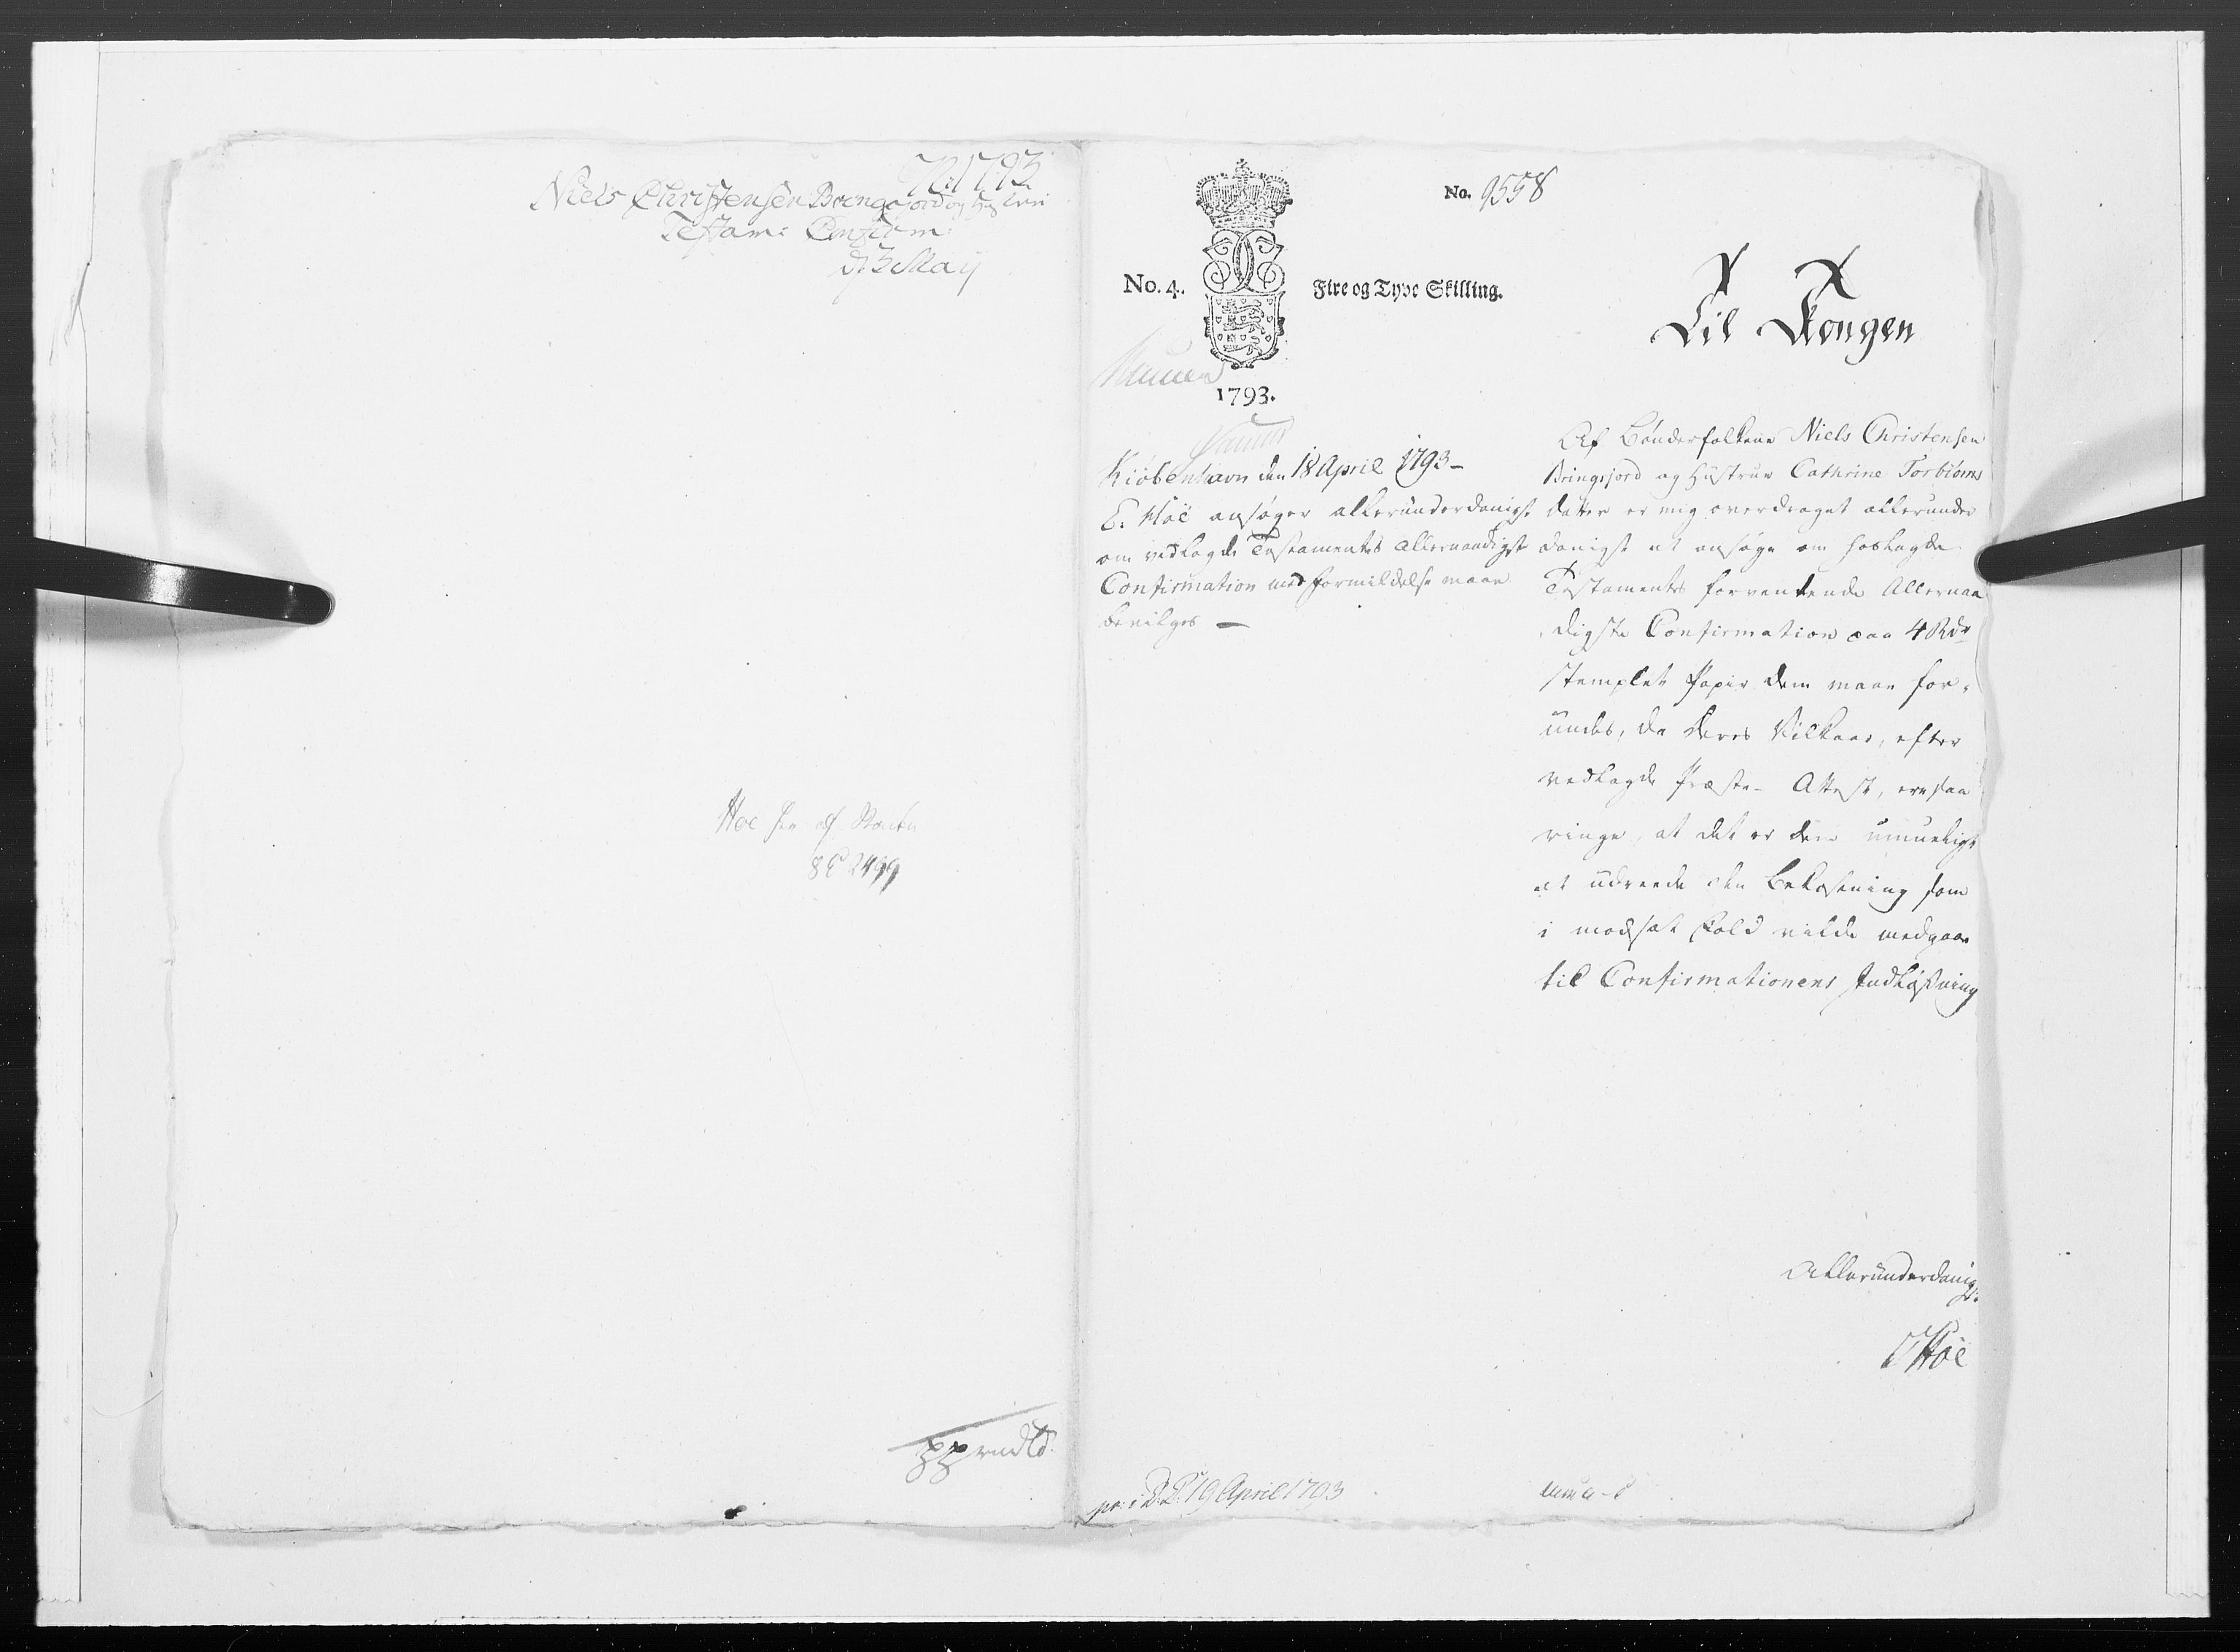 N: 1793
Niels Christensen Bringsjord og Hustrue
Testam: Confirm:
d 3 May
Hoe
8 C 2499
No. 9558
No. 4.
Fire og Tyve Skilling.
1793.
Til Kongen
Kiöbenhavn den 18 April 1793 –
E: Höe ansøger alleründerdanigst
om vedlagde Testamentes allernaadigst
Confirmation med Formildelse maae
bevilges –
Af Bönderfolkene Niels Christensen
Bringsjord og Hüstrue Cathrine Torbiörns
datter er mig overdraget allerunder
danigst at ansøge om hoslagde
Testamentes forventende Allernaa
digste Confirmation paa 4 Rdr
stemplet Papir dem maae for-
ündes, da deres Vilkaar, efter
vedlagde Præste- Attest, ere saa
ringe, at det er dem umueligt
at üdreede den Bekostning som
i modsat Fald vilde medgaae
til Confirmationens Indløsning
Alleründerdanigst.
Höe
pr: i D: C: 19 April 1793